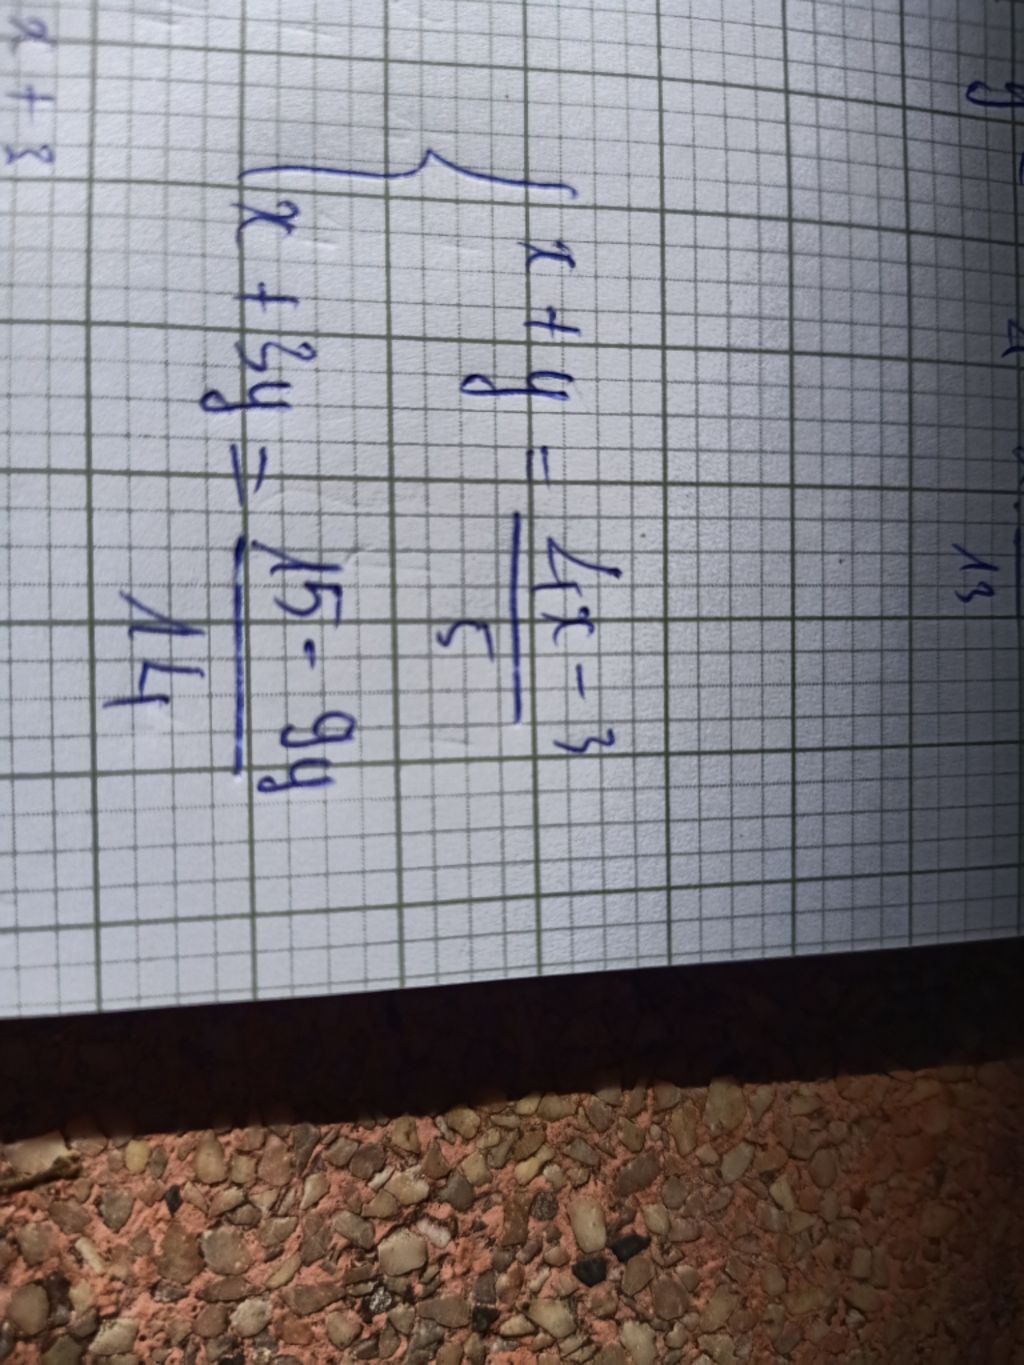 x + y = 4x - 3
5
x + 3y = 15 - 9y
14
x + 3